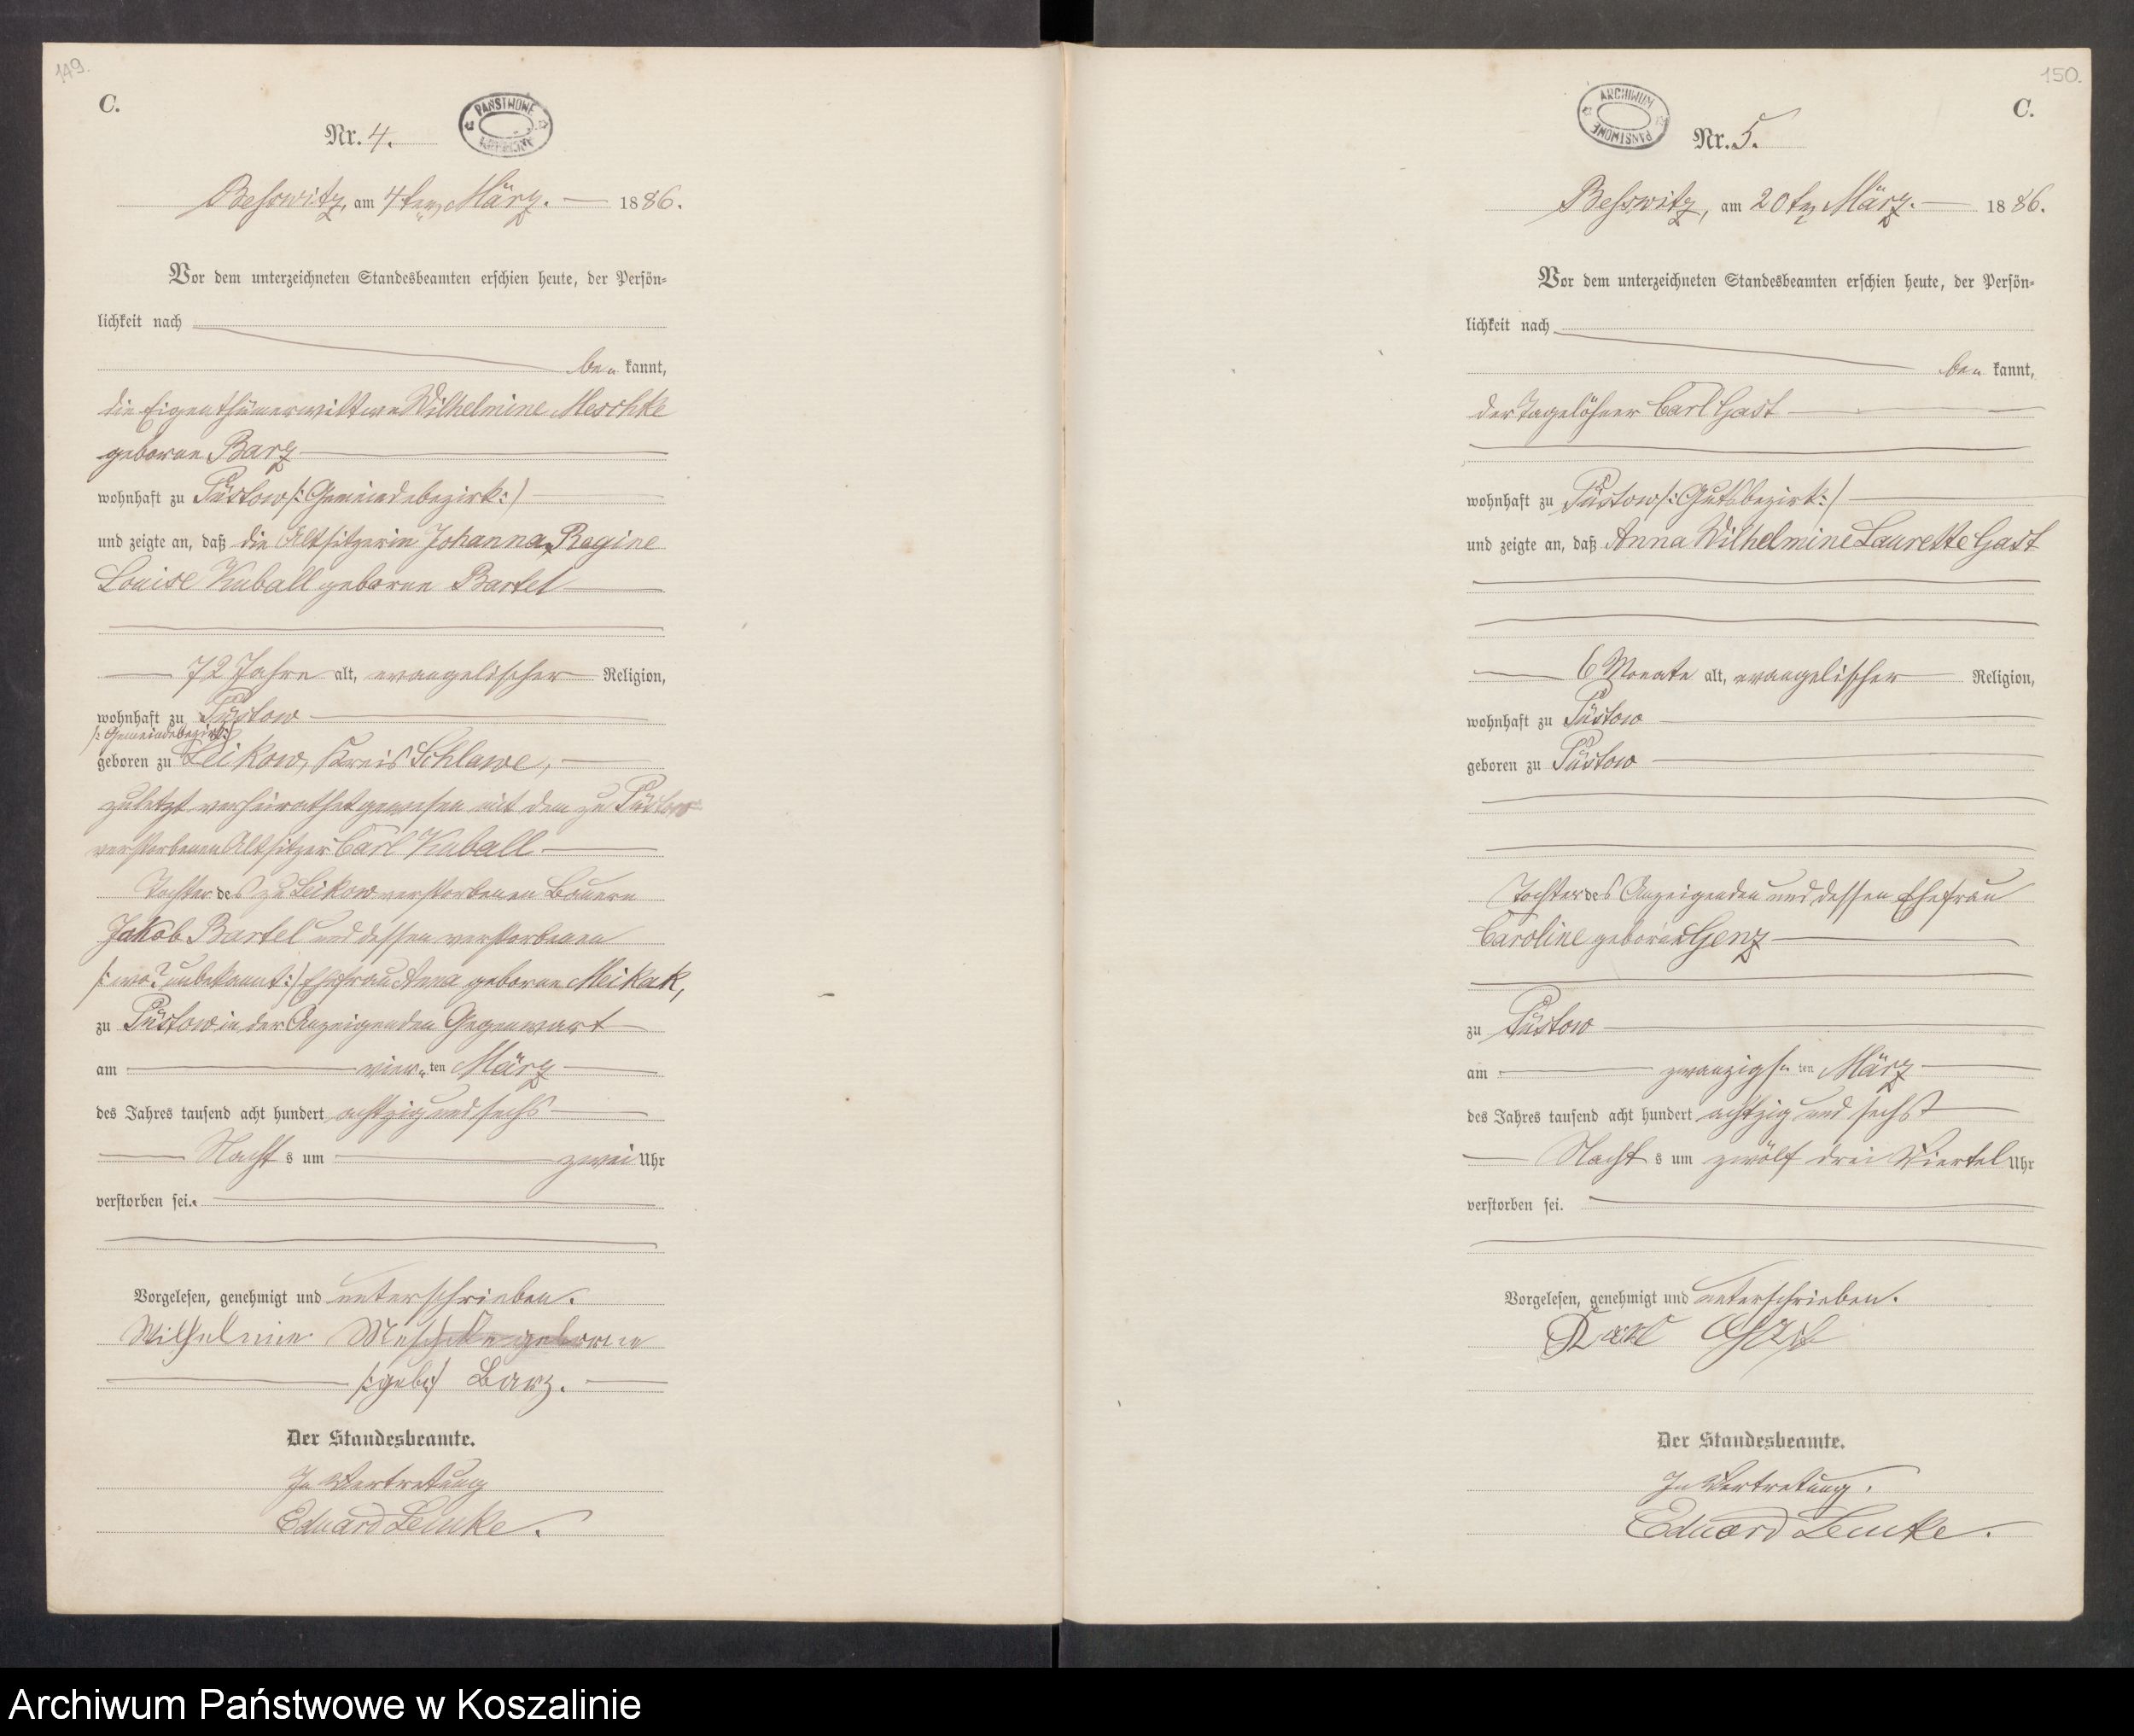 149.
C.
PAŃSTWOWE
ARCHIWUM
Nr. 4.
Besswitz, am 4ten März. 1886.
Vor dem unterzeichneten Standesbeamten erschien heute, der Persön-
lichkeit nach
be kannt,
die Eigenthümerwittwe Wilhelmine Meschke
geborne Barz
wohnhaft zu Püstow /: Gemeindebezirk :/
und zeigte an, daß die Altsitzerin Johanna, Regine
Louise Kuball geborne Bartel
72 Jahre alt, evangelischer Religion,
wohnhaft zu Püstow
/: Gemeindebezirk :/
geboren zu Leikow, Kreis Schlawe,
zuletzt verheirathet gewesen mit dem zu Püstow
verstorbenen Altsitzer Carl Kuball
Tochter des zu Leikow verstorbenen Bauern
Jakob Bartel und dessen verstorbenen
/: wo? unbekannt :/ Ehefrau Anna geborne Meikak,
zu Püstow in der Anzeigenden Gegenwart
am vier ten März
des Jahres tausend acht hundert achtzig und sechs
Nacht s um zwei Uhr
verstorben sei.
Vorgelesen, genehmigt und unterschrieben.
Wilhelmine Meschke geborne
/: geb :/ Barz.
Der Standesbeamte.
In Vertretung
Eduard Lemke.
150.
C.
ARCHIWUM
PAŃSTWOWE
Nr. 5.
Besswitz, am 20ten März. 1886.
Vor dem unterzeichneten Standesbeamten erschien heute, der Persön-
lichkeit nach
be kannt,
der Tagelöhner Carl Gast
wohnhaft zu Püstow /: Gutsbezirk :/
und zeigte an, daß Anna Wilhelmine Laurette Gast
6 Monate alt, evangelischer Religion,
wohnhaft zu Püstow
geboren zu Püstow
Tochter des Anzeigenden und dessen Ehefrau
Caroline geborne Genz
zu Püstow
am zwanzigs ten März
des Jahres tausend acht hundert achtzig und sechs
Nacht s um zwölf drei Viertel Uhr
verstorben sei.
Vorgelesen, genehmigt und unterschrieben.
Karl Gast
Der Standesbeamte.
In Vertretung.
Eduard Lemke.
Archiwum Państwowe w Koszalinie